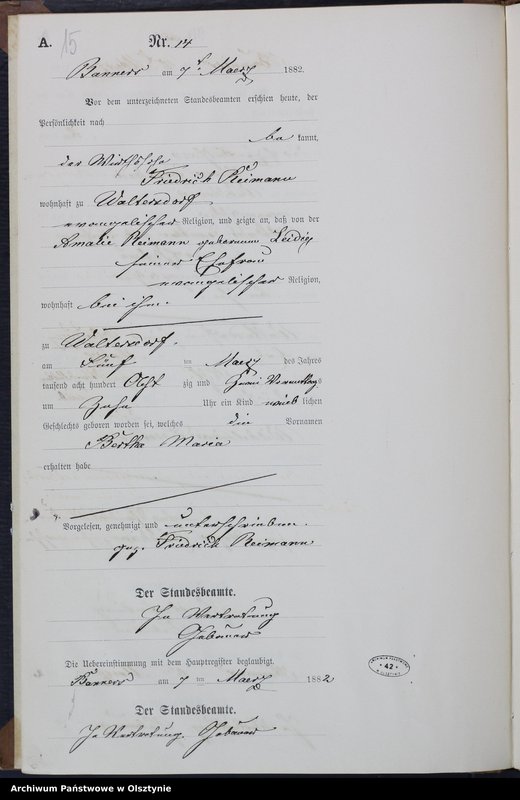 A. 15 Nr. 14
Banners am 7t Maerz 1882.
Vor dem unterzeichneten Standesbeamten erschien heute, der
Persönlichkeit nach
be kannt,
der Wirthssohn
Friedrich Reimann
wohnhaft zu Waltersdorf
evangelischer Religion, und zeigte an, daß von der
Amalie Reimann geborenen
seiner Ehefrau
evangelischer Religion,
wohnhaft bei ihm
zu Waltersdorf.
am fünf ten Maerz des Jahres
tausend acht hundert Acht zig und zwei Vormittags
um Zehn Uhr ein Kind weib lichen
Geschlechts geboren worden sei, welches die Vornamen
Bertha Maria
erhalten habe
Vorgelesen, genehmigt und unterschrieben.
gez. Friedrich Reimann
Der Standesbeamte.
In Vertretung
Gebauer
Die Uebereinstimmung mit dem Hauptregister beglaubigt.
Banners am 7 ten Maerz 1882
Der Standesbeamte.
In Vertretung. Gebauer
42
Archiwum Państwowe w Olsztynie